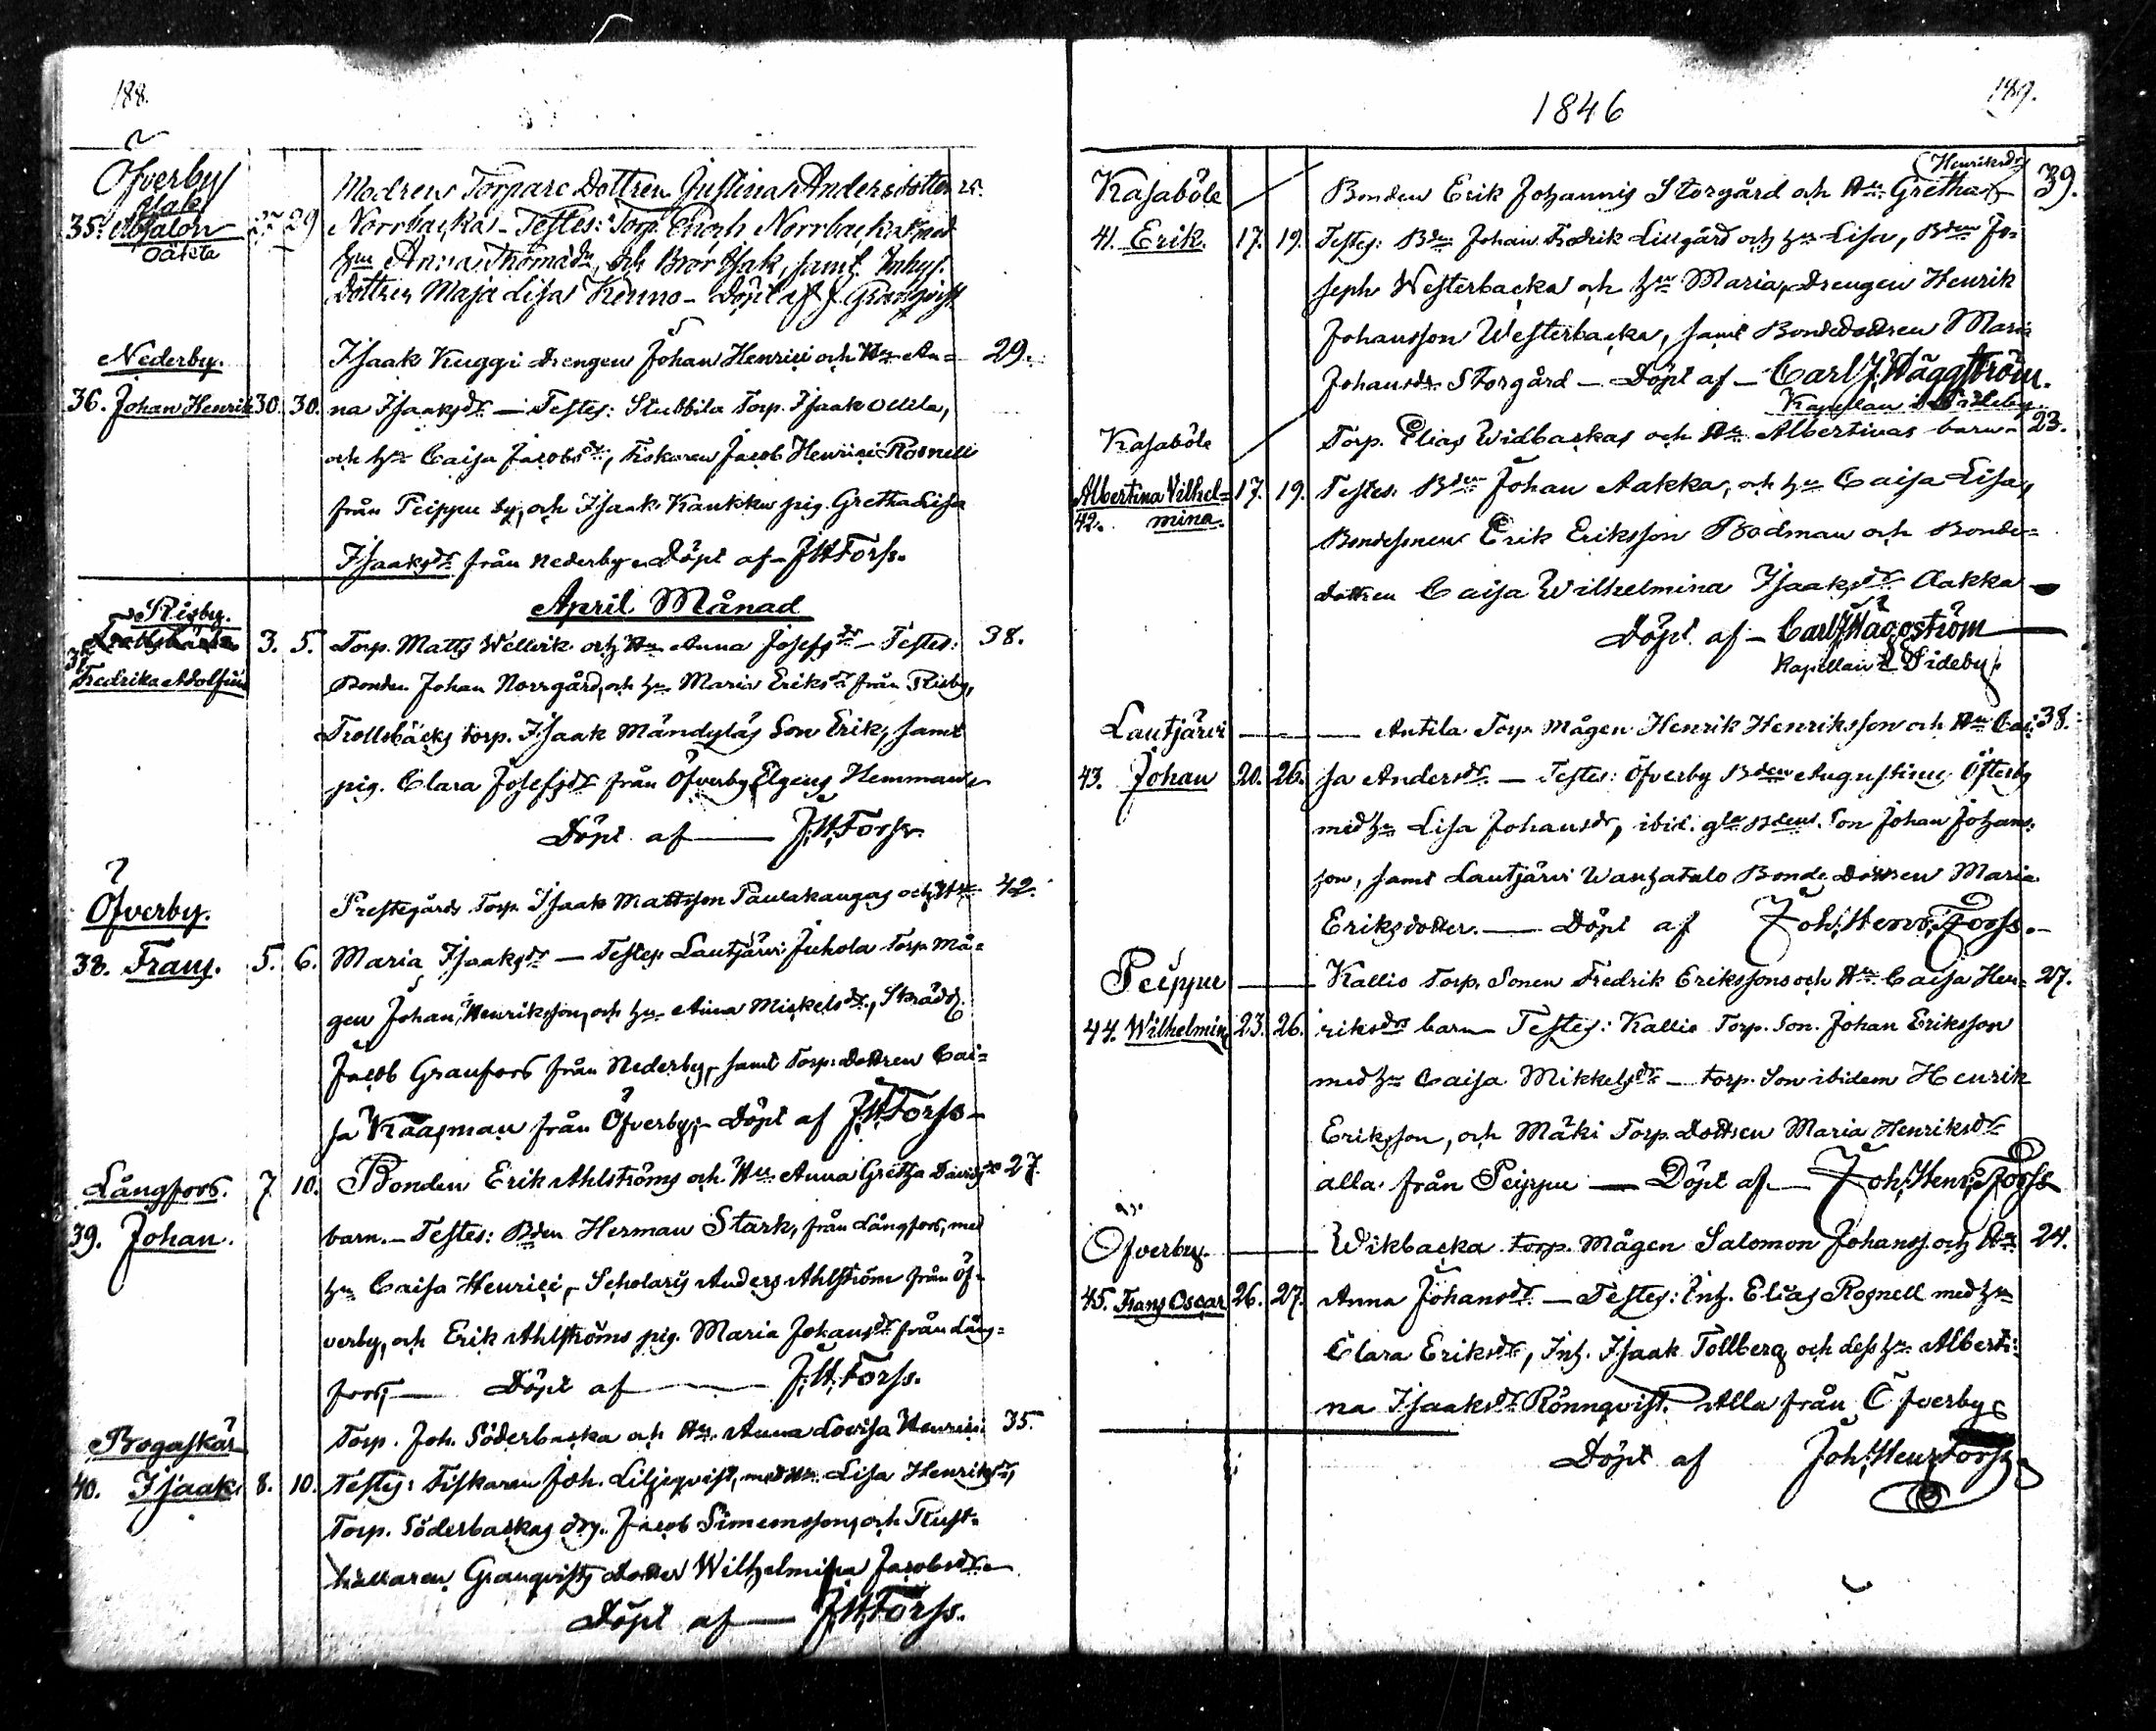 188.
Öfverby
Isak
35. Absalon 27 29
Oäkta
Modren Torpare Dottren Justina Andersdotter
Norrbackas - Testes: Torp. Enoch Norrbacka med
hu Anna Thomadr, och Bror Isak, samt Inhys.
Dottren Maja Lisa Kenno - Döpt af J. Granqvist
Nederby.
Isaak Kuggi Drengen Johan Henrici och Hu An= 29.
36. Johan Henrik 30. 30. na Isaaksdr — Testes: Stubbila Torp. Isaak
och hu Caisa Jacobsdr, Fiskaren Jacob Henrici Rosnell
från Peippu by, och Isaak Kankku pig. Gretha Lisa
Isaaksdr från Nederby - Döpt af - J.H. Forss.
April Månad
Risby.
3. 5. Torp. Matts Wellvik och Hu Anna Josefsdr - Testes: 38.
37. Fredrika Adolfina
Bonden Johan Norrgård, och hu Maria Eriksdr från Risby,
Trollsbäcks torp. Isaak Mändyläs Son Erik, samt
pig. Clara Josefsdr från Öfverby Elgens Hemman
Döpt af — J.H. Forss.
Öfverby.
Prestegårds Torp. Isaak Mattsson Paulakangas och Hu 42.
38. Frans. 5. 6. Maria Isaaksdr — Testes Lautjärvi Juhola Torp. Må=
gen Johan Henriksson, och hu Anna Mickelsdr, Skrädd.
Jacob Granfors från Nederby, samt Torp. dottren Cai=
sa Kaapman från Öfverby; - Döpt af J.H. Forss -
Långfors. 7. 10. Bonden Erik Ahlströms och Hu Anna Gretha Davidsdr 27.
39. Johan.
barn. - Testes: Bden Herman Stark, från Långfors, med
hu Caisa Henrici, - Scholaris Anders Ahlström från Öf=
verby, och Erik Ahlströms pig. Maria Johansdr från Lång=
fors; — Döpt af — J.H. Forss.
Bogaskär
Torp. Joh. Söderbacka och Hu. Anna Lovisa Henrici 35.
40. Isaak 8. 10. Testes: Fiskaren Joh. Liljeqvist, med Hu Lisa Henriksdr,
Torp. Söderbackas drg. Jacob Simonsson, och Rust=
hållaren Granqvists dotter Wilhelmina Jacobsdr
Döpt af — J.H. Forss.
1846
189.
Henriksdr
Kasaböle
Bonden Erik Johannis Storgård och Hu Gretha 39.
41. Erik. 17. 19. Testes: Bdn Johan Fredrik Lillgård och hu Lisa, Bden Jo=
seph Westerbacka och hu Maria, Drengen Henrik
Johansson Westerbacka, samt Bondedottren Maria
Johansdr Storgård — Döpt af — Carl J. Häggström.
Kapellan i Sideby
Kasaböle
Torp. Elias Widbackas och Hu Albertinas barn - 23.
Albertina Vilhel= 17. 19. Testes. Bden Johan Aakka, och hu Caisa Lisa,
42. mina.
Bondesonen Erik Eriksson Bodman och Bonde=
dottren Caisa Wilhelmina Isaaksdr Aakka —
Döpt af — Carl J. Häggström —
Kapellan i Sideby
Lautjärvi — Antila Torp. Mågen Henrik Henriksson och Hu Cai= 38.
43. Johan 20. 26. sa Andersdr — Testes: Öfverby Bden Augustinus Österby
med hu Lisa Johansdr, ibid. gla Bdens Son Johan Johans=
son, samt Lautjärvi Wanhatalo Bonde Dottren Maria
Eriksdotter. — Döpt af Joh. Henr. Forss. -
Peippu — Kallio Torp. Sonen Fredrik Erikssons och Hu Caisa Hen= 27.
44. Wilhelmina 23. 26. riksdr barn - Testes: Kallio Torp. Son. Johan Eriksson
med hu Caisa Mikkelsdr — torp. Son ibidem Henrik
Eriksson, och Mäki Torp. Dottren Maria Henriksdr
alla från Peippu — Döpt af — Joh. Henr. Forss
Öfverby. — Wikbacka torp. Mågen Salomon Johanss. och Hu 24.
45. Frans Oscar 26. 27. Anna Johansdr. — Testes: Inh. Elias Rosnell med hu
Clara Eriksdr, Inh. Isaak Tollberg och dess hu Alberti=
na Isaaksdr Rönnqvist. Alla från Öfverby
Döpt af Joh. Henr. Forss